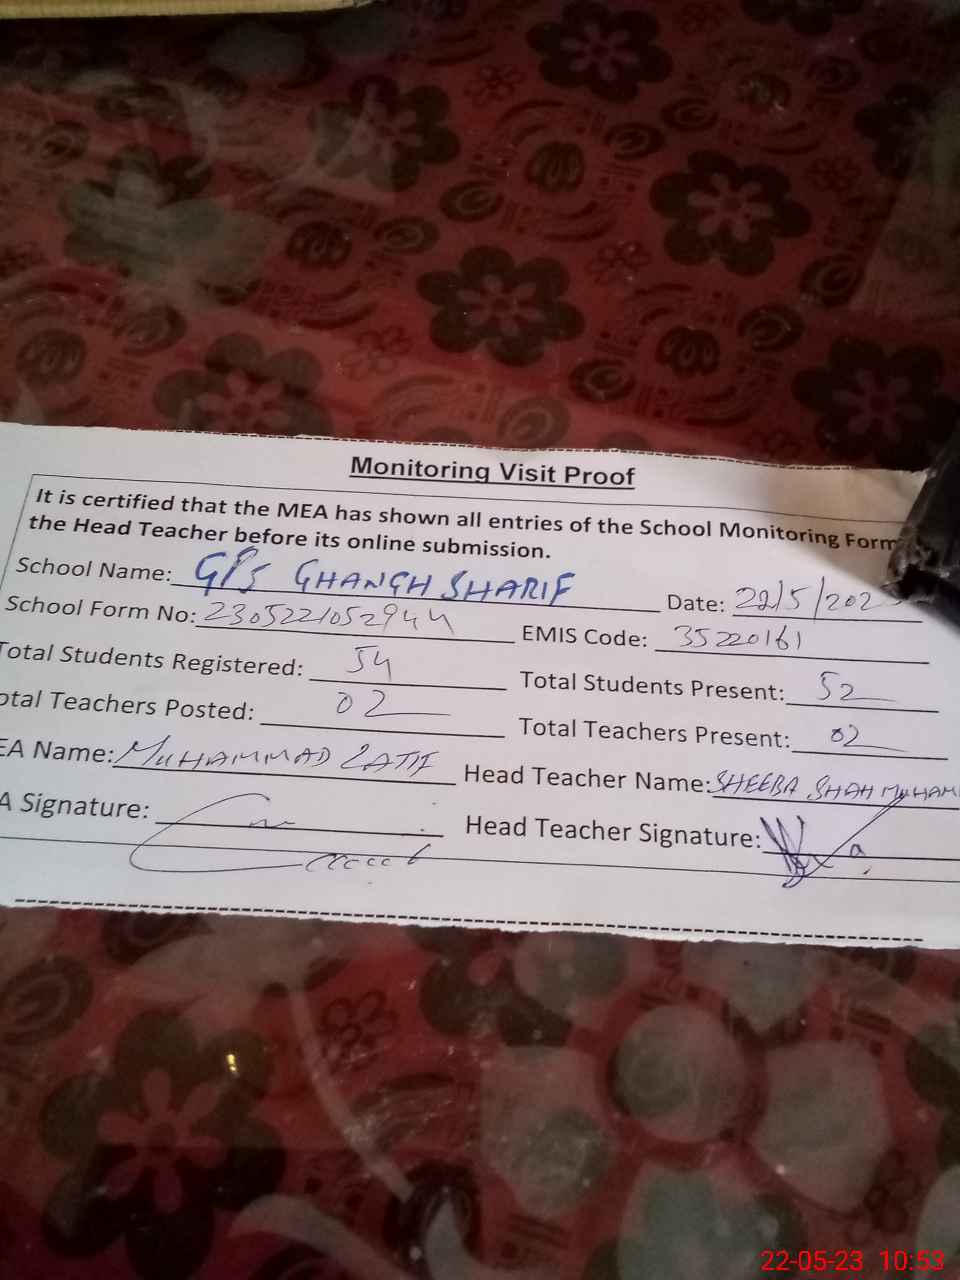 Monitoring Visit Proof
It is certified that the MEA has shown all entries of the School Monitoring Form
the Head Teacher before its online submission.
School Name: GPS GHANGH SHARIF Date: 22/5/202
School Form No: 2305221052944 EMIS Code: 35220161
Total Students Registered: 54 Total Students Present: 52
otal Teachers Posted: 02 Total Teachers Present: 02
EA Name: MUHAMMAD LATIF Head Teacher Name: SHEEBA SHAH MUHAM
A Signature: Head Teacher Signature:
22-05-23 10:53